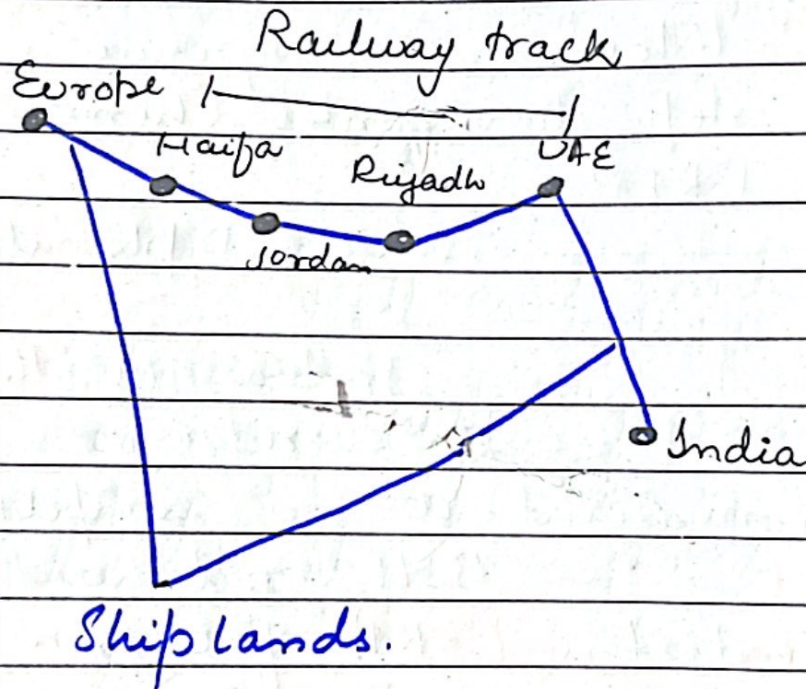 Railway track
Europe
Haifa
UAE
Riyadh
Jordan
India
Ship lands.